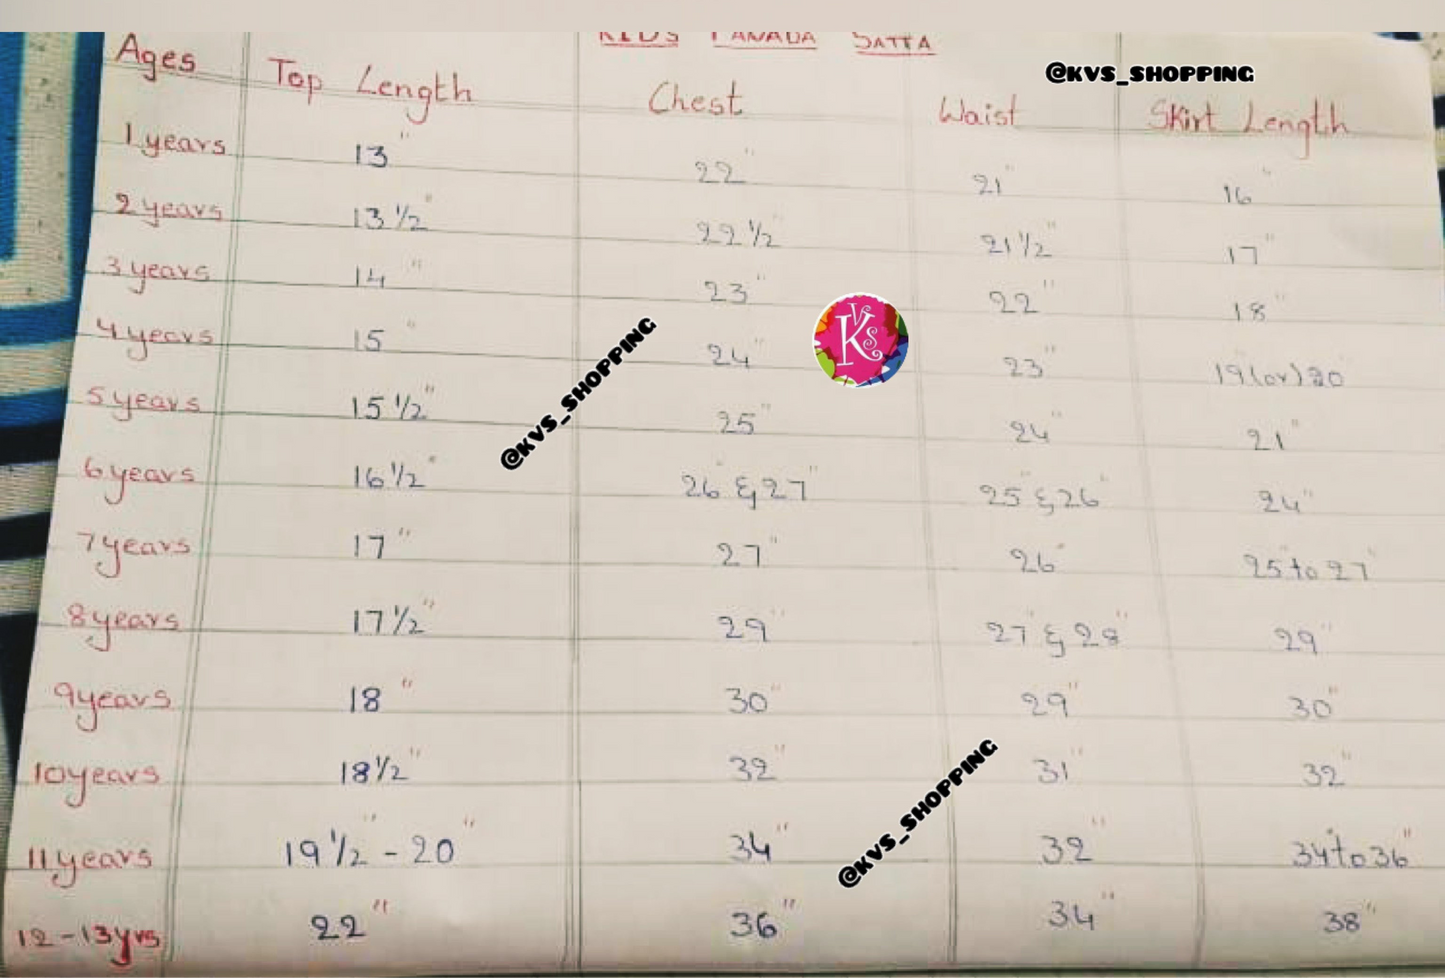 KIDS PAVADA SATTA
@KVS_SHOPPING
Ages Top Length Chest Waist Skirt Length
1 years 13" 22" 21" 16"
2 years 13 1/2" 22 1/2" 21 1/2" 17"
3 years 14" 23" 22" 18"
4 years 15" 24" 23" 19(or)20
KVS
@KVS_SHOPPING
5 years 15 1/2" 25" 24" 21"
6 years 16 1/2" 26" & 27" 25" & 26" 24"
7 years 17" 27" 26" 25" to 27"
8 years 17 1/2" 29" 27" & 28" 29"
9 years 18" 30" 29" 30"
10 years 18 1/2" 32" 31" 32"
@KVS_SHOPPING
11 years 19 1/2" - 20" 34" 32" 34" to 36"
12 - 13 yrs 22" 36" 34" 38"